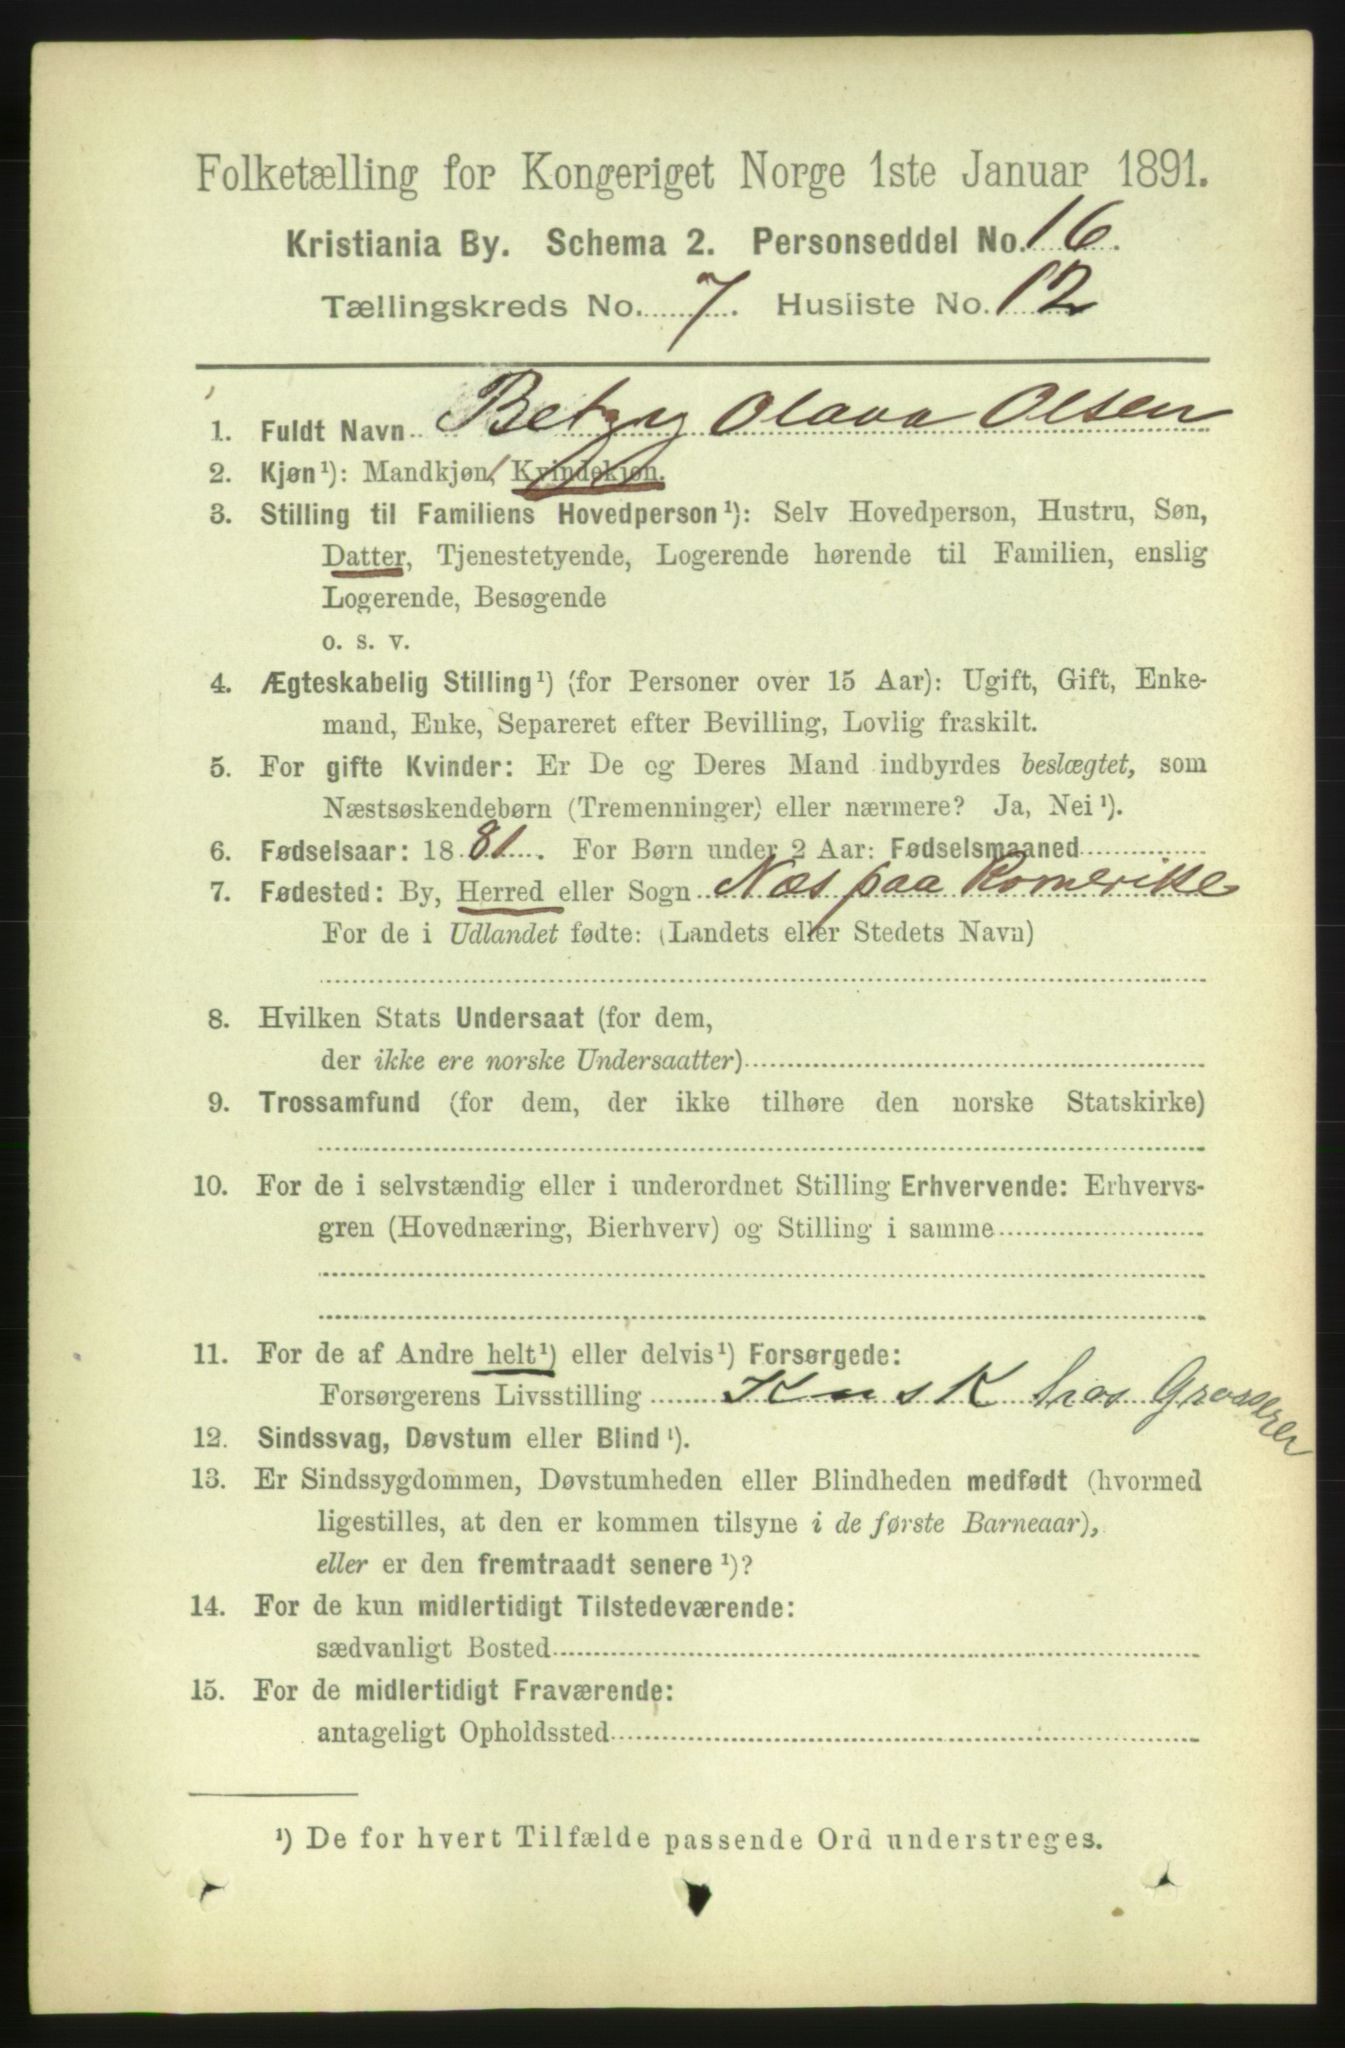 Folketælling for Kongeriget Norge 1ste Januar 1891.
Kristiania By. Schema 2. Personseddel No. 16.
Tællingskreds No. 7. Husliste No. 12
1. Fuldt Navn Betzy Olava Olsen
2. Kjøn¹): Mandkjøn, Kvindekjøn.
3. Stilling til Familiens Hovedperson¹): Selv Hovedperson, Hustru, Søn,
Datter, Tjenestetyende, Logerende hørende til Familien, enslig
Logerende, Besøgende
o. s. v.
4. Ægteskabelig Stilling¹) (for Personer over 15 Aar): Ugift, Gift, Enke-
mand, Enke, Separeret efter Bevilling, Lovlig fraskilt.
5. For gifte Kvinder: Er De og Deres Mand indbyrdes beslægtet, som
Næstsøskendebørn (Tremenninger) eller nærmere? Ja, Nei¹).
6. Fødselsaar: 1881. For Børn under 2 Aar: Fødselsmaaned
7. Fødested: By, Herred eller Sogn Næs paa Romerike
For de i Udlandet fødte: (Landets eller Stedets Navn)
8. Hvilken Stats Undersaat (for dem,
der ikke ere norske Undersaatter)
9. Trossamfund (for dem, der ikke tilhøre den norske Statskirke)
10. For de i selvstændig eller i underordnet Stilling Erhvervende: Erhvervs-
gren (Hovednæring, Bierhverv) og Stilling i samme
11. For de af Andre helt¹) eller delvis¹) Forsørgede:
Forsørgerens Livsstilling Kusk hos Grosserer
12. Sindssvag, Døvstum eller Blind¹).
13. Er Sindssygdommen, Døvstumheden eller Blindheden medfødt (hvormed
ligestilles, at den er kommen tilsyne i de første Barneaar),
eller er den fremtraadt senere¹)?
14. For de kun midlertidigt Tilstedeværende:
sædvanligt Bosted
15. For de midlertidigt Fraværende:
antageligt Opholdssted
¹) De for hvert Tilfælde passende Ord understreges.